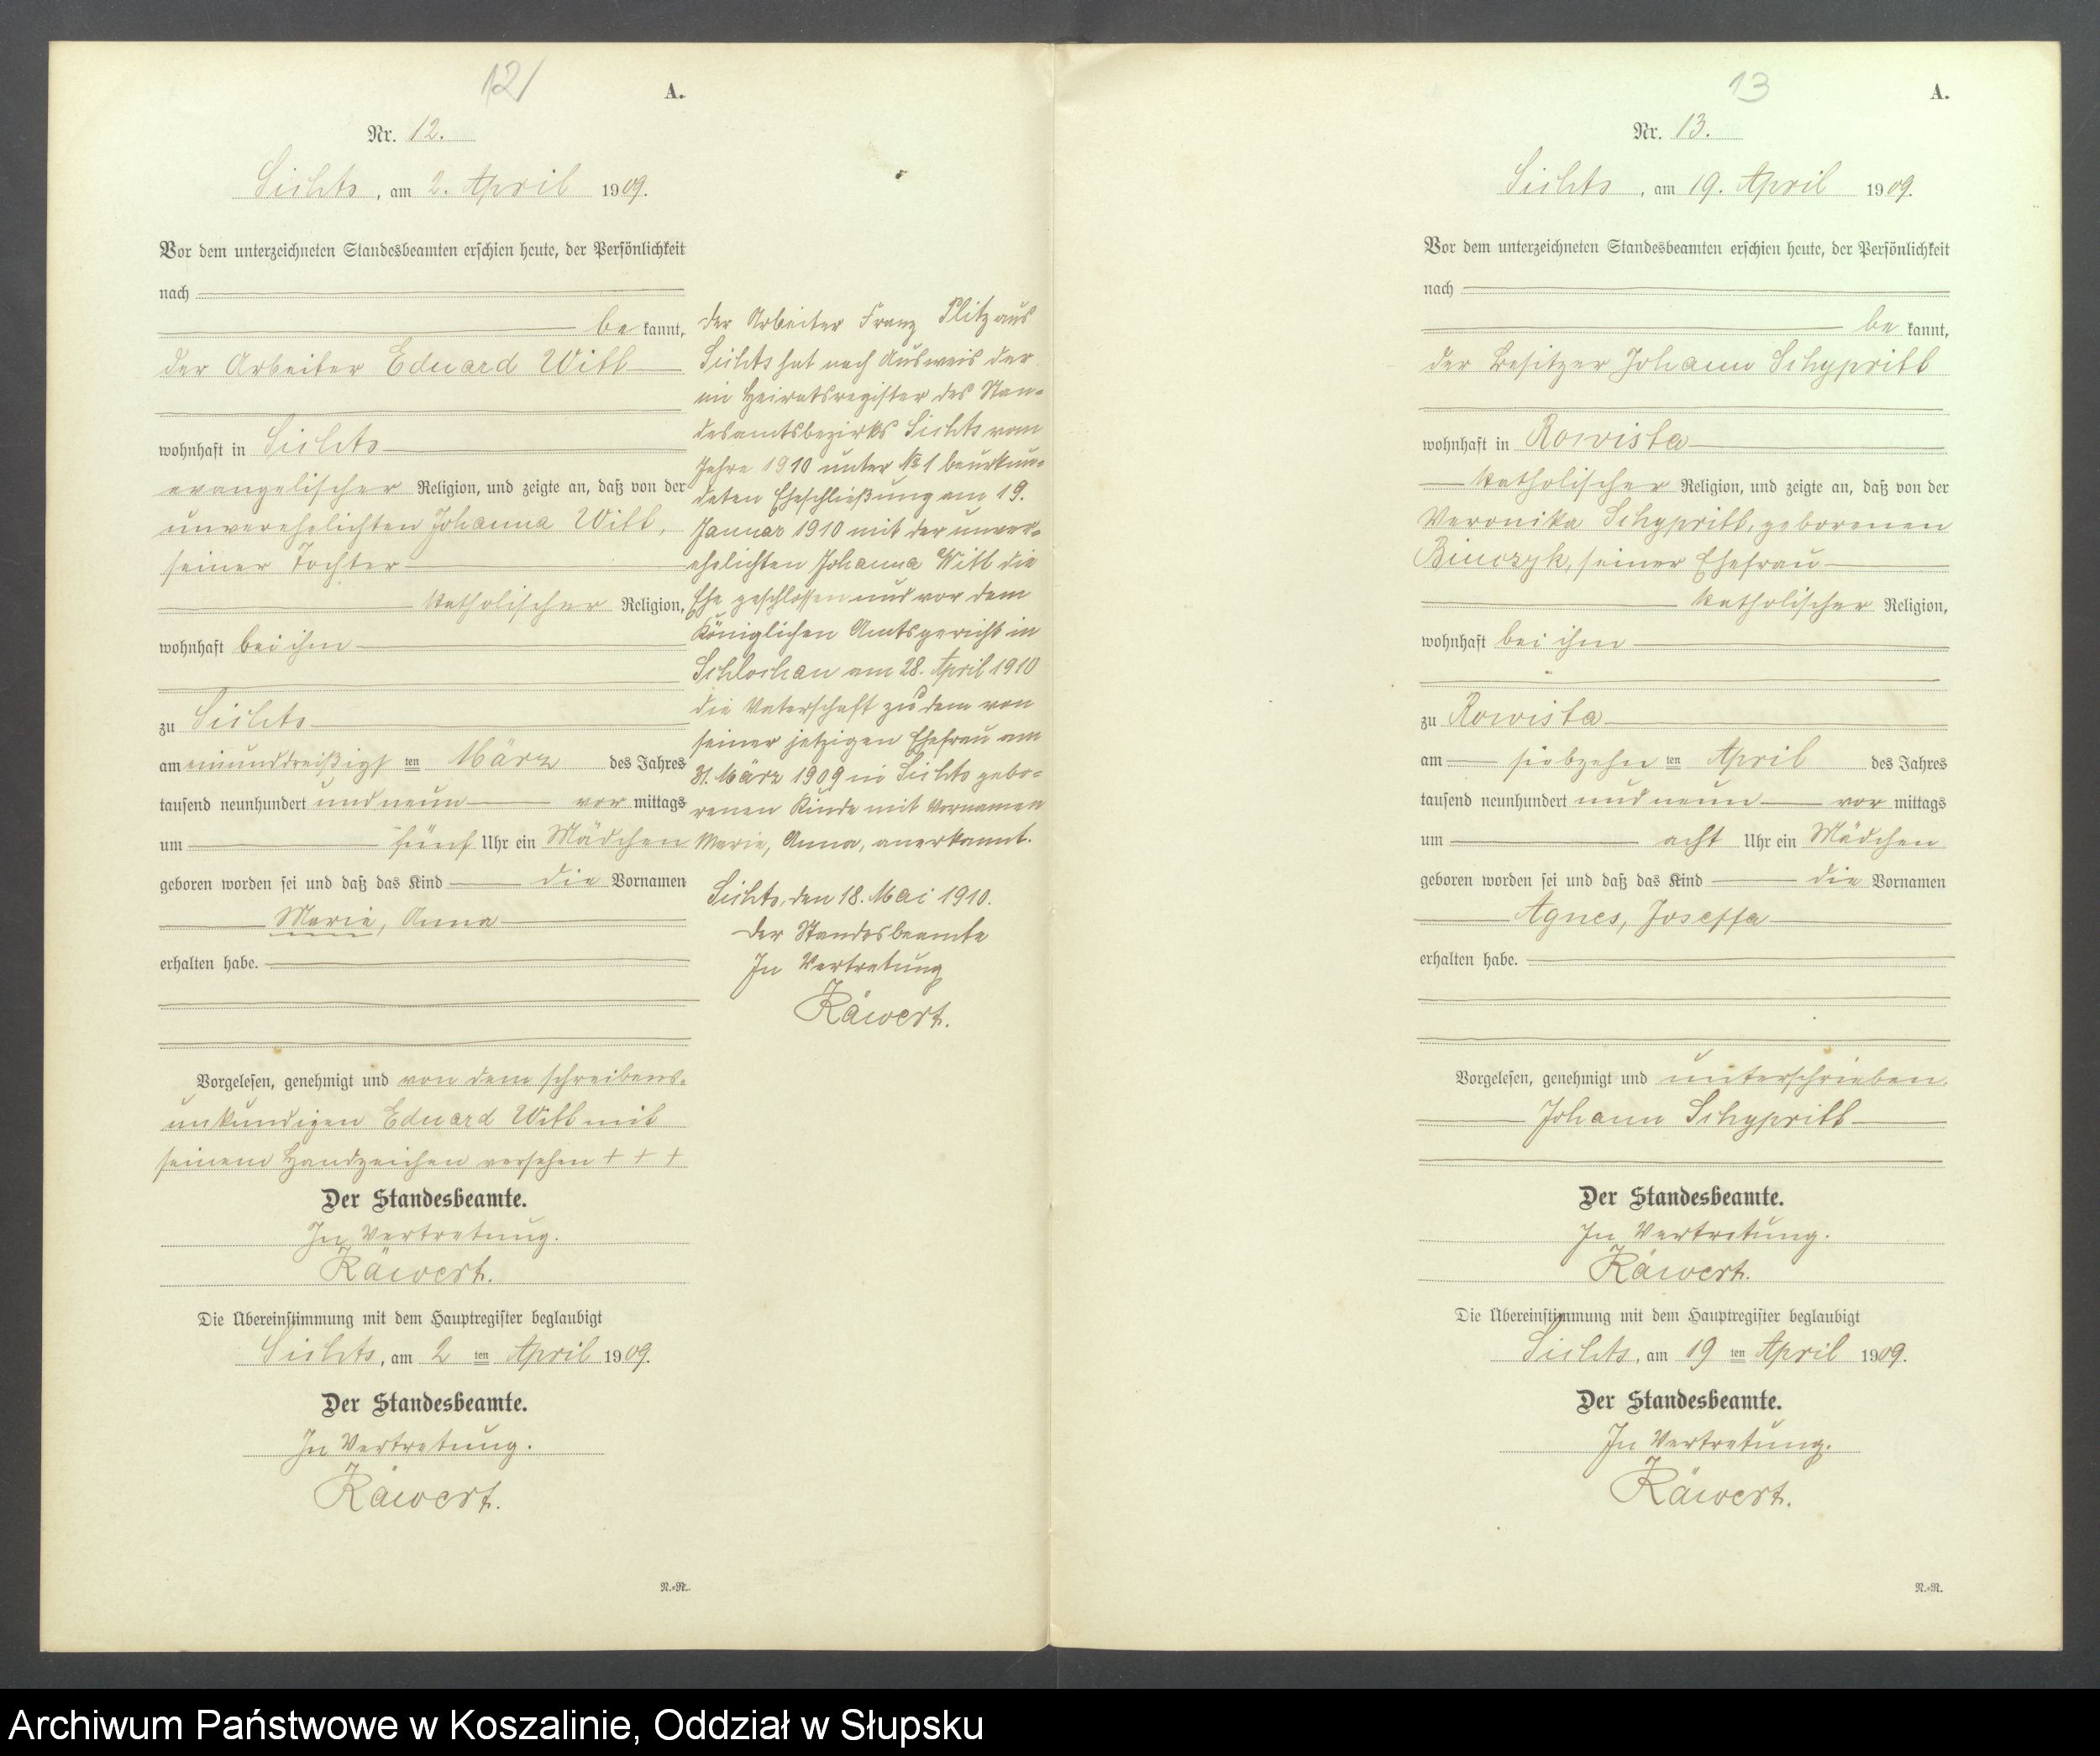 12/
A.
Nr. 12.
Sichts, am 2. April 1909.
Vor dem unterzeichneten Standesbeamten erschien heute, der Persönlichkeit
nach
be kannt,
der Arbeiter Eduard Witt
wohnhaft in Sichts
evangelischer Religion, und zeigte an, daß von der
unverehelichten Johanna Witt,
seiner Tochter
katholischer Religion,
wohnhaft bei ihm
zu Sichts
am einunddreißigsten März des Jahres
tausend neunhundert und neun vor mittags
um fünf Uhr ein Mädchen
geboren worden sei und daß das Kind die Vornamen
Marie, Anna
erhalten habe.
Vorgelesen, genehmigt und von dem schreibens-
unkundigen Eduard Witt mit
seinem Handzeichen versehen + + +
Der Standesbeamte.
In Vertretung.
Räwert.
Die Übereinstimmung mit dem Hauptregister beglaubigt
Sichts, am 2 ten April 1909.
Der Standesbeamte.
In Vertretung.
Räwert.
N.=R.
Der Arbeiter Franz Plitz aus
Sichts hat nach Ausweis der
im Heiratsregister des Stan-
desamtsbezirks Sichts vom
Jahre 1910 unter № 1 beurkun-
deten Eheschließung am 19.
Januar 1910 mit der unver-
ehelichten Johanna Witt die
Ehe geschlossen und vor dem
Königlichen Amtsgericht in
Schlochau am 28. April 1910
die Vaterschaft zu dem von
seiner jetzigen Ehefrau am
31. März 1909 in Sichts gebo-
renen Kinde mit Vornamen
Marie, Anna, anerkannt.
Sichts, den 18. Mai 1910.
Der Standesbeamte
In Vertretung
Räwert.
13
A.
Nr. 13.
Sichts, am 19. April 1909.
Vor dem unterzeichneten Standesbeamten erschien heute, der Persönlichkeit
nach
be kannt,
der Besitzer Johann Schypritt
wohnhaft in Rowista
katholischer Religion, und zeigte an, daß von der
Veronika Schypritt, geborenen
Binczyk, seiner Ehefrau
katholischer Religion,
wohnhaft bei ihm
zu Rowista
am siebzehn ten April des Jahres
tausend neunhundert und neun vor mittags
um acht Uhr ein Mädchen
geboren worden sei und daß das Kind die Vornamen
Agnes, Joseffa
erhalten habe.
Vorgelesen, genehmigt und unterschrieben.
Johann Schypritt
Der Standesbeamte.
In Vertretung.
Räwert.
Die Übereinstimmung mit dem Hauptregister beglaubigt
Sichts, am 19 ten April 1909.
Der Standesbeamte.
In Vertretung.
Räwert.
N.=R.
Archiwum Państwowe w Koszalinie, Oddział w Słupsku